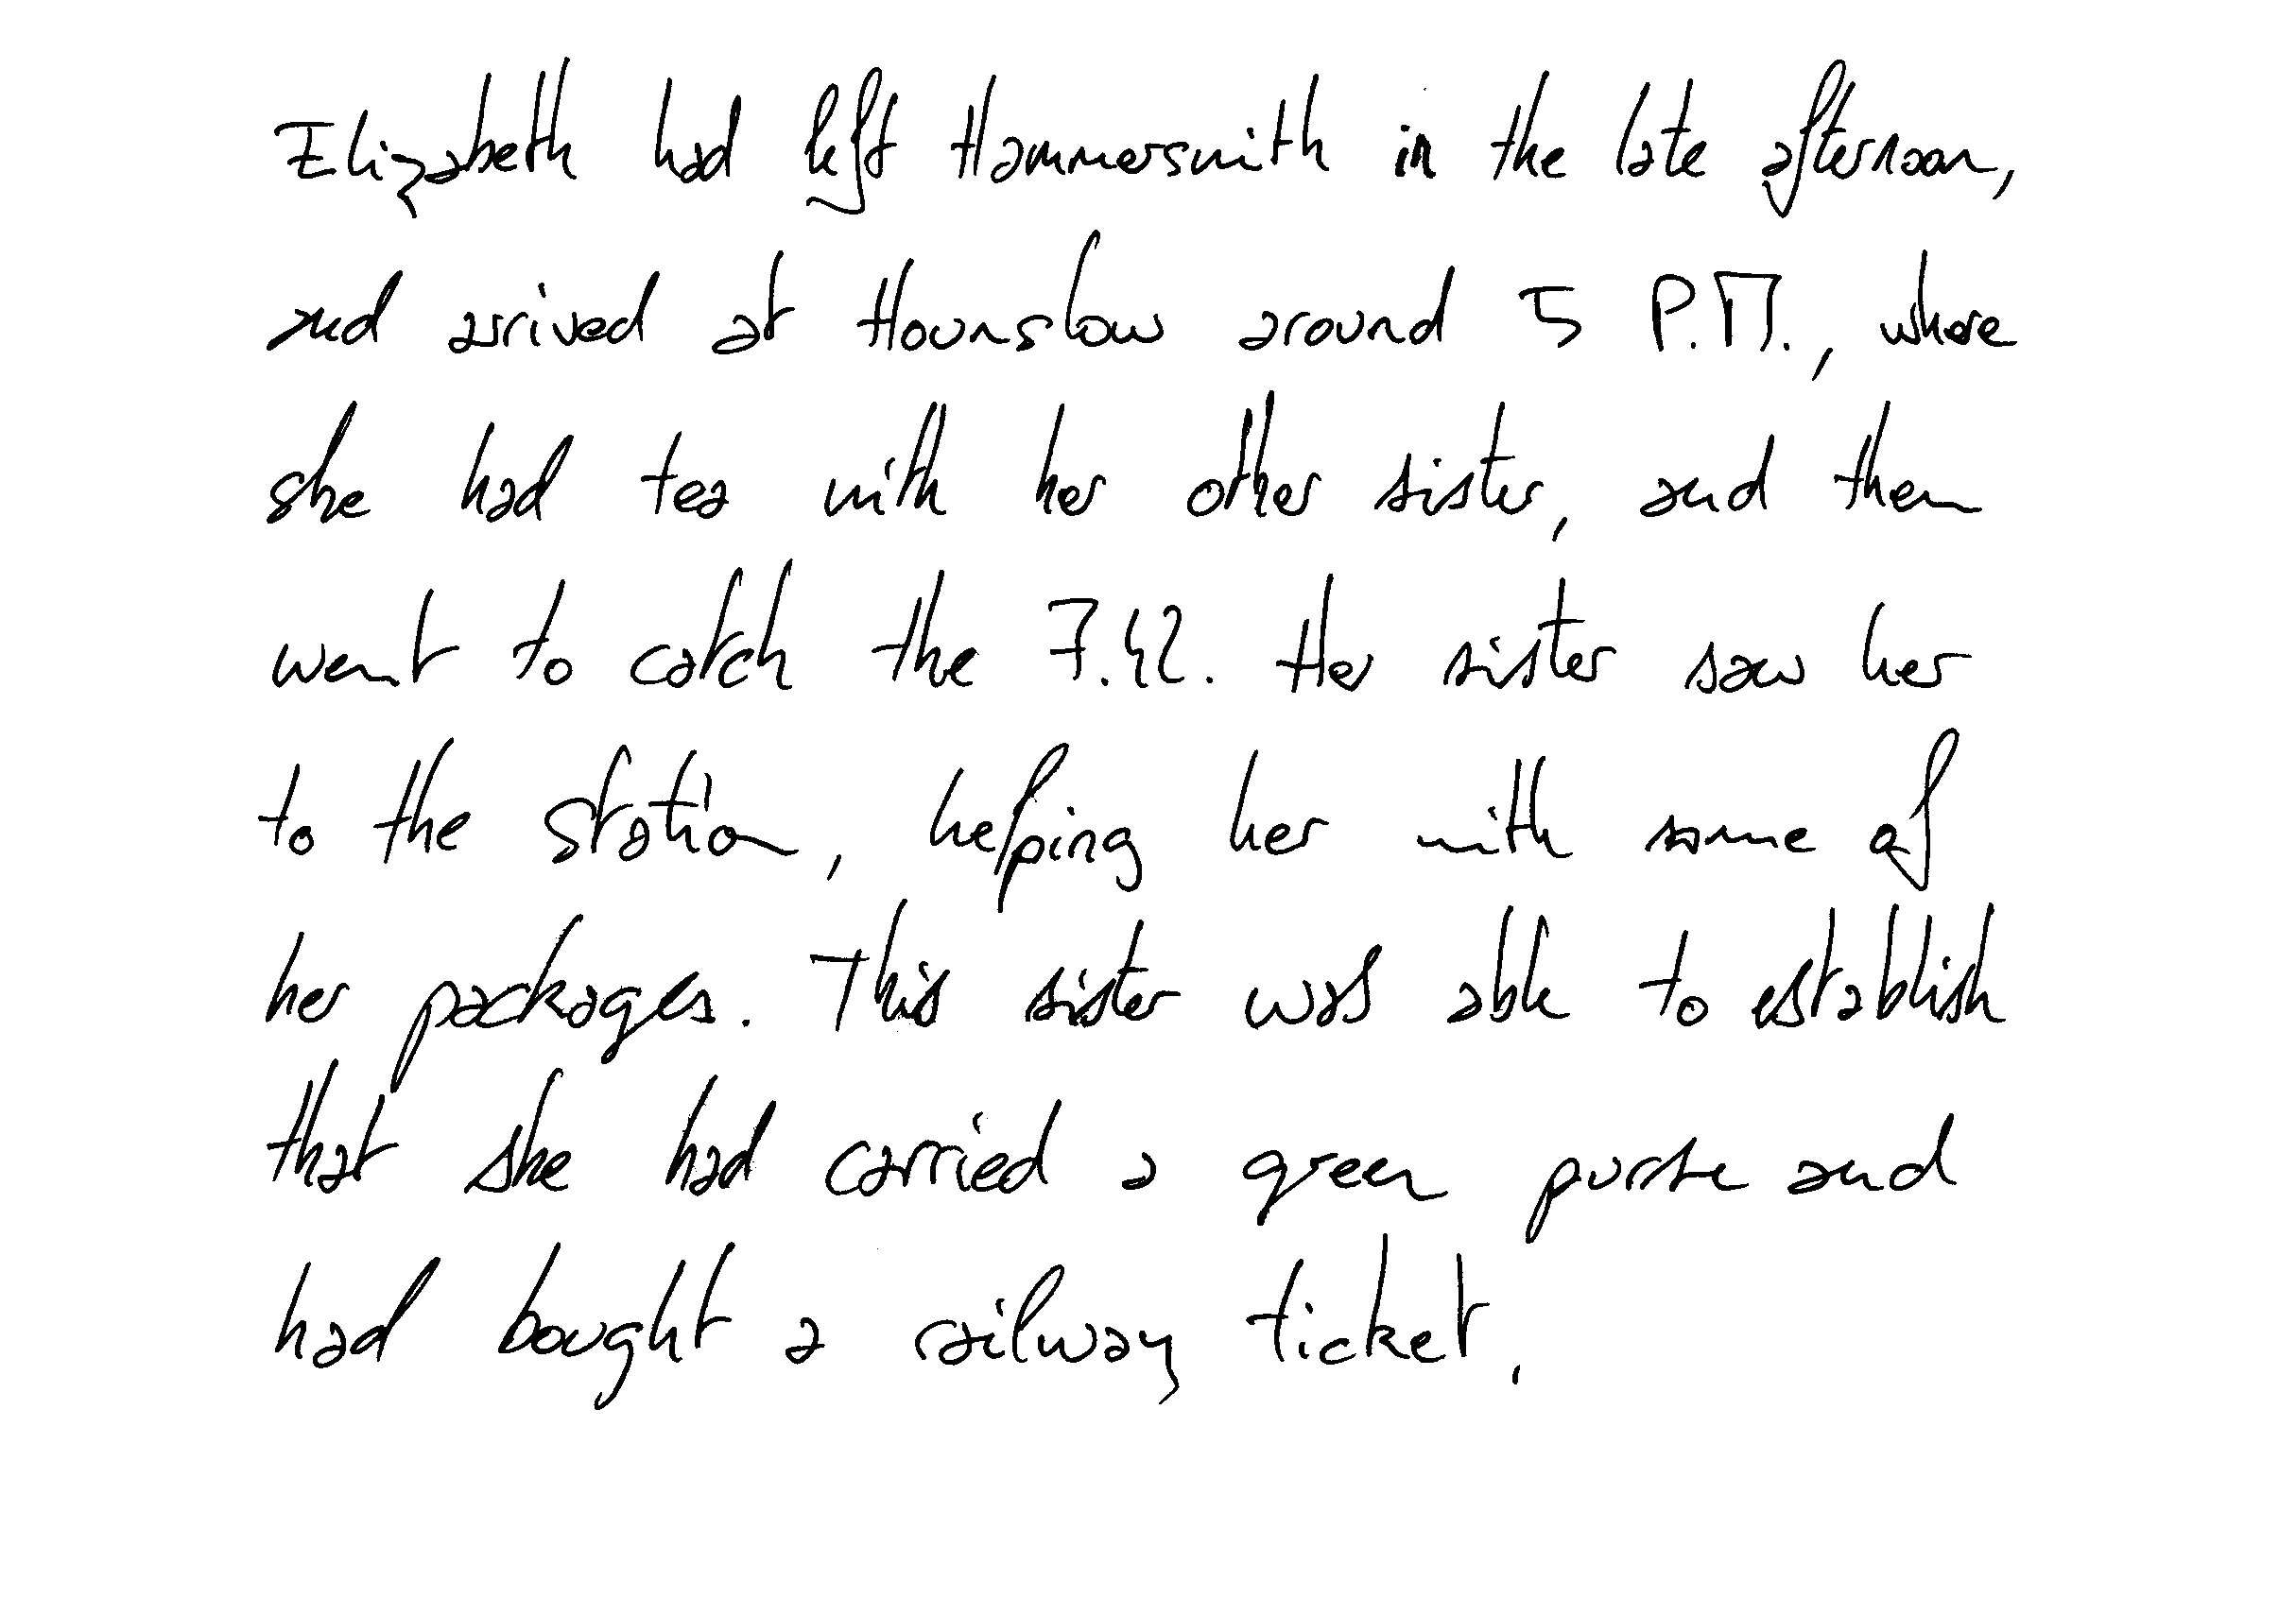 Elizabeth had left Hammersmith in the late afternoon,
and arrived at Hounslow around 5 P.M., where
she had tea with her other sister, and then
went to catch the 7.42. Her sister saw her
to the station, helping her with some of
her packages. This sister was able to establish
that she had carried a green purse and
had bought a railway ticket.